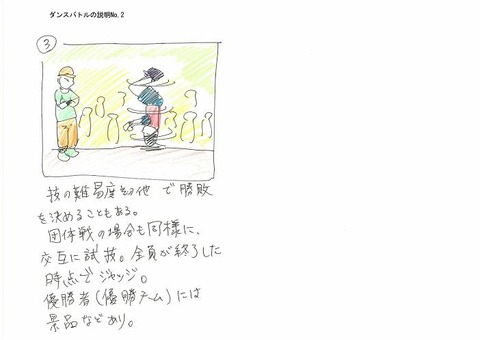 ダンスバトルの説明No.2
3
技の難易度その他で勝敗
を決めることもある。
団体戦の場合も同様に、
交互に試技。全員が終了した
時点でジャッジ。
優勝者(優勝チーム)には
景品などあり。